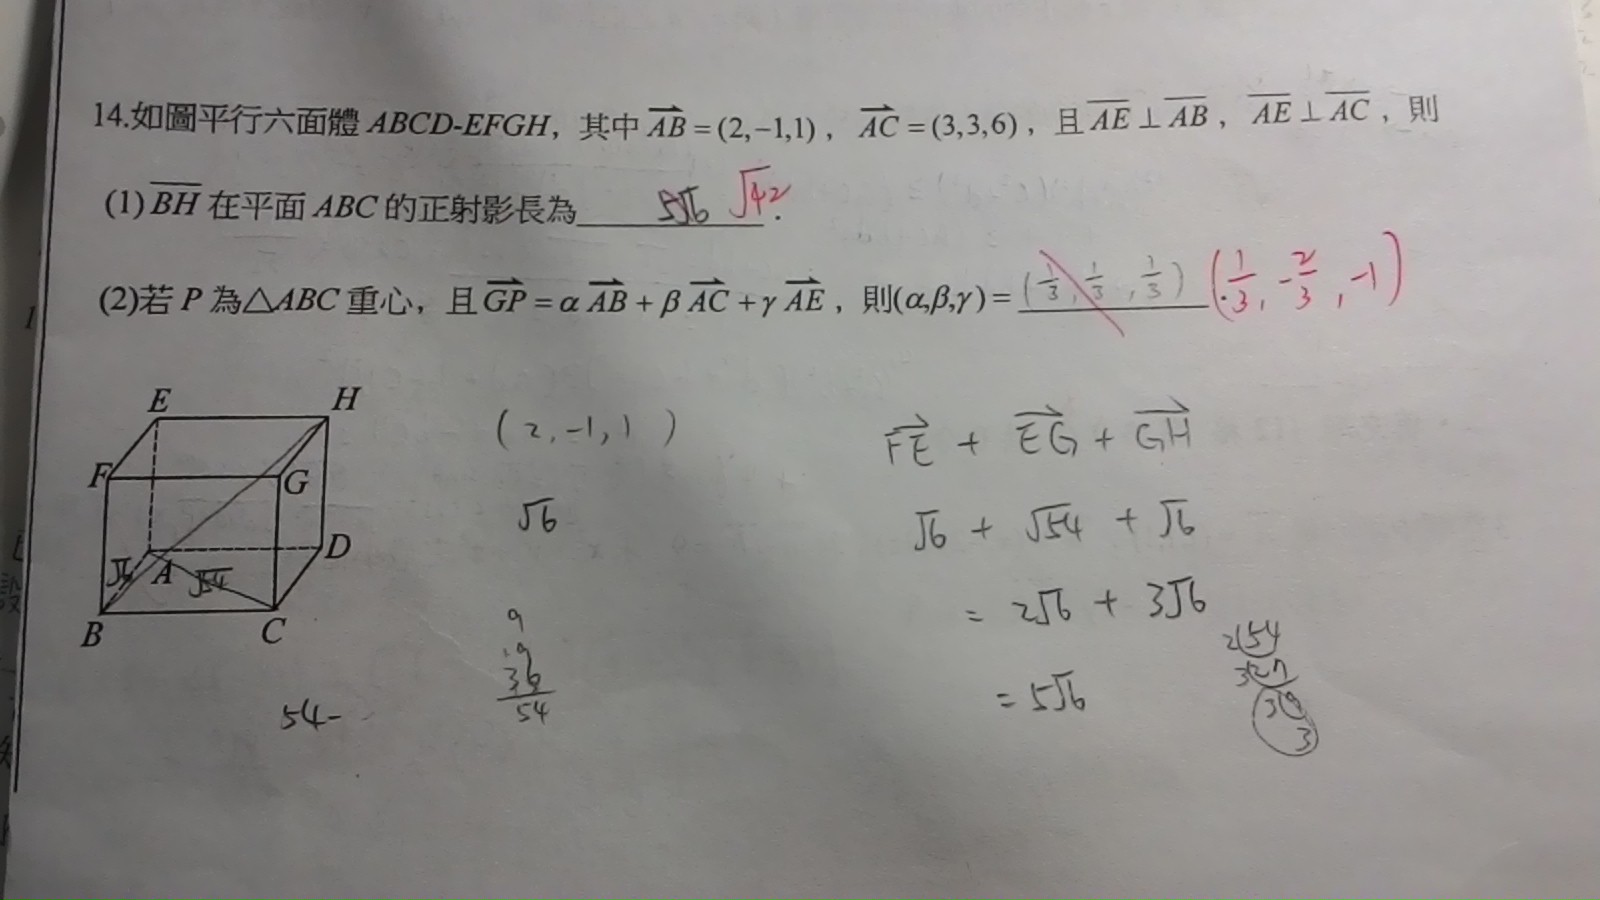 14.如圖平行六面體 ABCD-EFGH，其中 AB = (2,−1,1)，AC = (3,3,6)，且 AE ⊥ AB，AE ⊥ AC，則
(1) BH 在平面 ABC 的正射影長為 5√6 √42 .
(2)若 P 為△ABC 重心，且 GP = α AB + β AC + γ AE，則(α,β,γ) = (1/3, 1/3, 1/3) (1/3, -2/3, -1)
E H
F G
A D
B C
√6 √54
(2, -1, 1)
√6
9
9
36
54
54-
FE + EG + GH
√6 + √54 + √6
= 2√6 + 3√6
= 5√6
2 54
3 27
3 9
3